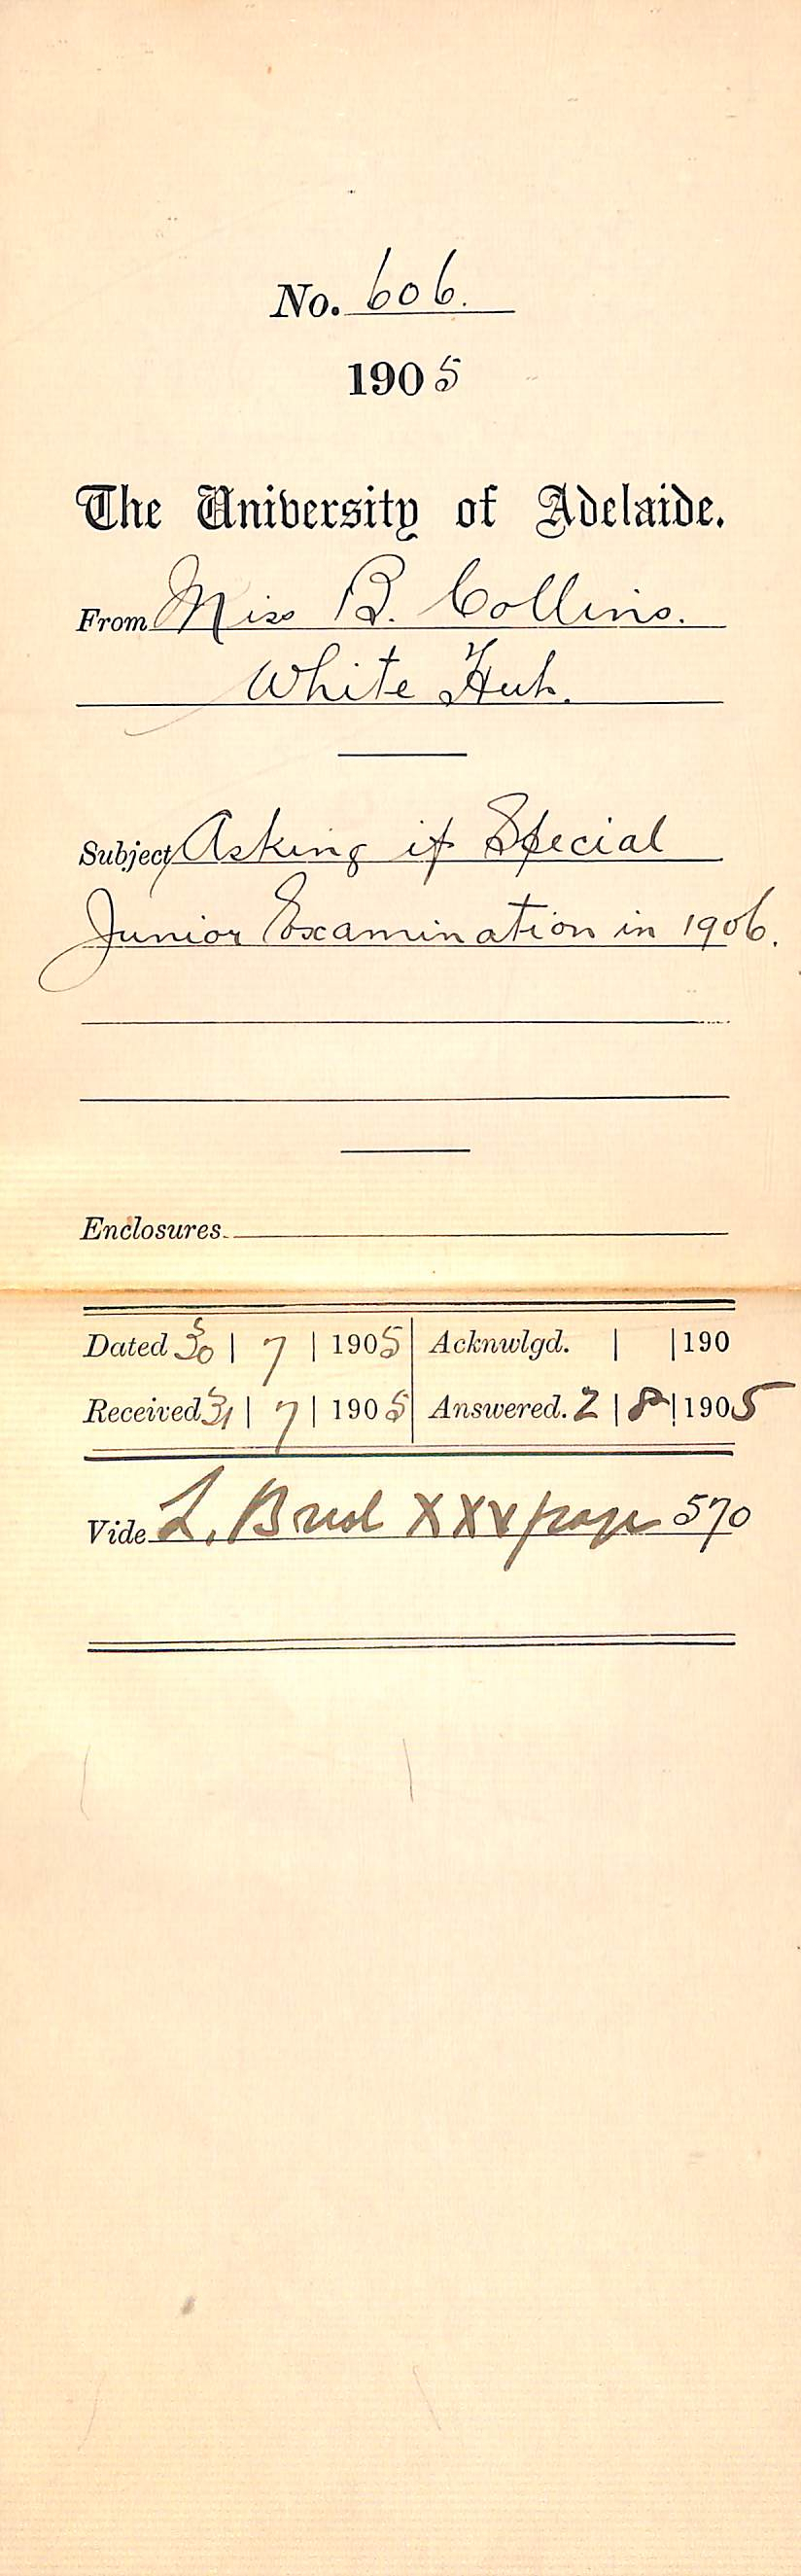 No. 606.
1905
The University of Adelaide.
From Miss B. Collins.
White Hut.
Subject Asking if Special
Junior Examination in 1906.
Enclosures
Dated 30 | 7 | 1905 Acknwlgd. | | 190
Received 31 | 7 | 1905 Answered. 2 | 8 | 1905
Vide L. XXV page 570